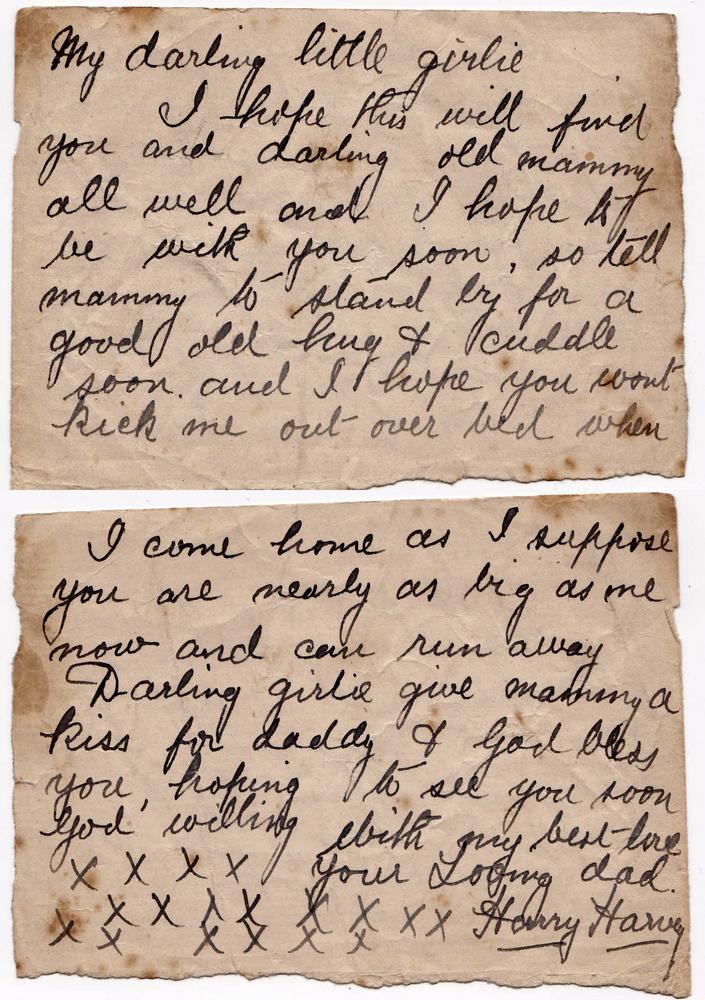 My darling little girlie
I hope this will find
you and darling old mammy
all well and I hope to
be with you soon, so tell
mammy to stand by for a
good old hug & cuddle
soon. and I hope you wont
kick me out over bed when
I come home as I suppose
you are nearly as big as me
now and can run away
Darling girlie give mammy a
kiss for daddy & God bless
you, hoping to see you soon
God willing with my best love
x x x x your Loving dad.
x x x x x x x x Harry Harvey
x x x x x x